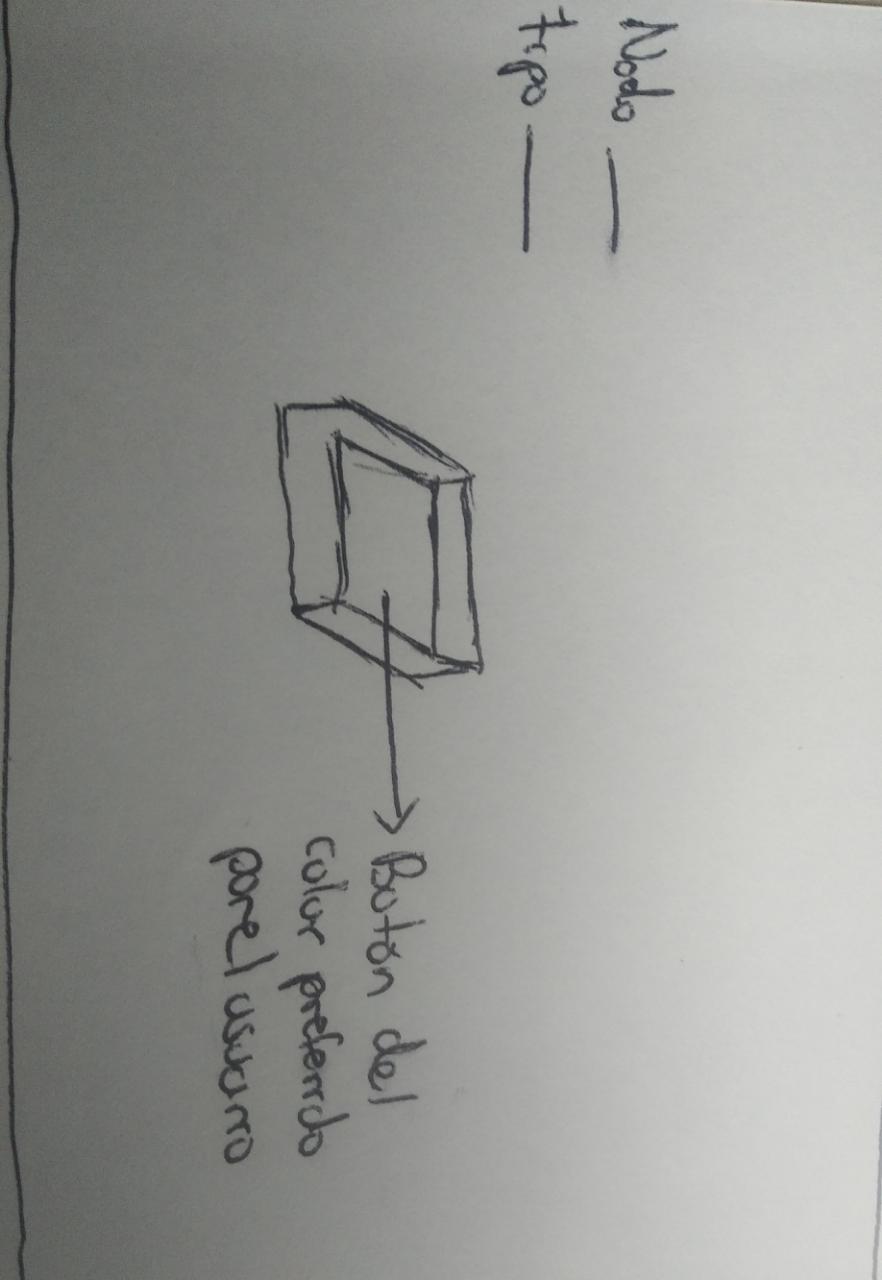 Nodo ___
tipo ___
Botón del
color preferido
por el usuario